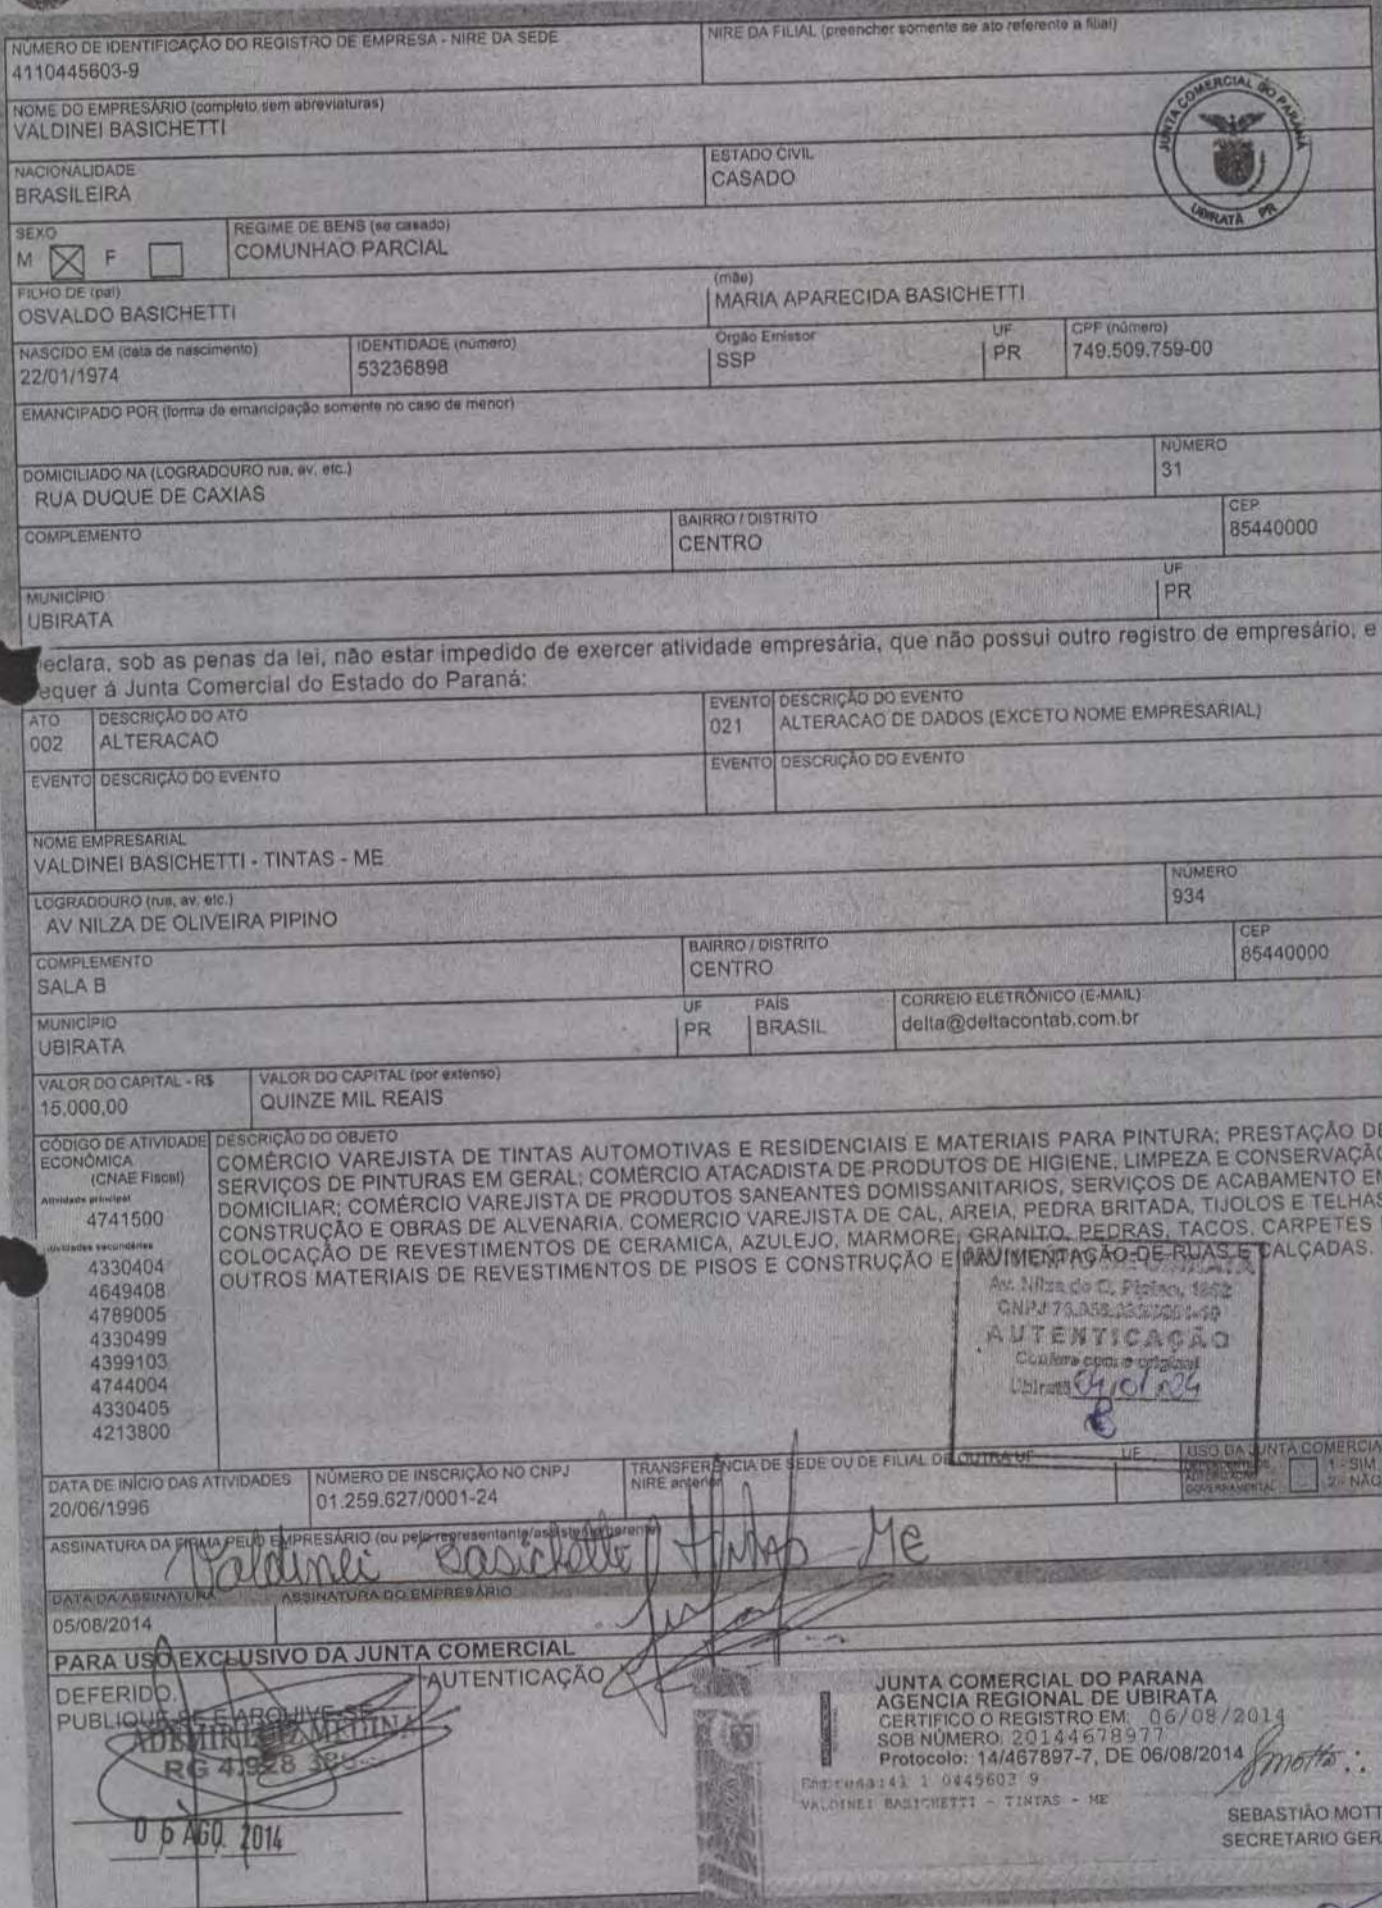 NÚMERO DE IDENTIFICAÇÃO DO REGISTRO DE EMPRESA - NIRE DA SEDE
4110445603-9
NIRE DA FILIAL (preencher somente se ato referente a filial)
NOME DO EMPRESÁRIO (completo sem abreviaturas)
VALDINEI BASICHETTI
JUNTA COMERCIAL DO PARANÁ
UBIRATÃ PR
NACIONALIDADE
BRASILEIRA
ESTADO CIVIL
CASADO
SEXO
M F
REGIME DE BENS (se casado)
COMUNHAO PARCIAL
FILHO DE (pai)
OSVALDO BASICHETTI
(mãe)
MARIA APARECIDA BASICHETTI
NASCIDO EM (data de nascimento)
22/01/1974
IDENTIDADE (número)
53236898
Orgão Emissor
SSP
UF
PR
CPF (número)
749.509.759-00
EMANCIPADO POR (forma de emancipação somente no caso de menor)
DOMICILIADO NA (LOGRADOURO rua, av, etc.)
RUA DUQUE DE CAXIAS
NÚMERO
31
COMPLEMENTO
BAIRRO / DISTRITO
CENTRO
CEP
85440000
MUNICÍPIO
UBIRATA
UF
PR
eclara, sob as penas da lei, não estar impedido de exercer atividade empresária, que não possui outro registro de empresário, e
equer á Junta Comercial do Estado do Paraná:
ATO
002
DESCRIÇÃO DO ATO
ALTERACAO
EVENTO
021
DESCRIÇÃO DO EVENTO
ALTERACAO DE DADOS (EXCETO NOME EMPRESARIAL)
EVENTO DESCRIÇÃO DO EVENTO
EVENTO DESCRIÇÃO DO EVENTO
NOME EMPRESARIAL
VALDINEI BASICHETTI - TINTAS - ME
LOGRADOURO (rua, av, etc.)
AV NILZA DE OLIVEIRA PIPINO
NÚMERO
934
COMPLEMENTO
SALA B
BAIRRO / DISTRITO
CENTRO
CEP
85440000
MUNICÍPIO
UBIRATA
UF
PR
PAÍS
BRASIL
CORREIO ELETRÔNICO (E-MAIL)
delta@deltacontab.com.br
VALOR DO CAPITAL - R$
15.000,00
VALOR DO CAPITAL (por extenso)
QUINZE MIL REAIS
CÓDIGO DE ATIVIDADE
ECONÔMICA
(CNAE Fiscal)
Atividade principal
4741500
Atividades secundárias
4330404
4649408
4789005
4330499
4399103
4744004
4330405
4213800
DESCRIÇÃO DO OBJETO
COMÉRCIO VAREJISTA DE TINTAS AUTOMOTIVAS E RESIDENCIAIS E MATERIAIS PARA PINTURA; PRESTAÇÃO DE
SERVIÇOS DE PINTURAS EM GERAL; COMÉRCIO ATACADISTA DE PRODUTOS DE HIGIENE, LIMPEZA E CONSERVAÇÃO
DOMICILIAR; COMÉRCIO VAREJISTA DE PRODUTOS SANEANTES DOMISSANITARIOS, SERVIÇOS DE ACABAMENTO EM
CONSTRUÇÃO E OBRAS DE ALVENARIA. COMERCIO VAREJISTA DE CAL, AREIA, PEDRA BRITADA, TIJOLOS E TELHAS
COLOCAÇÃO DE REVESTIMENTOS DE CERAMICA, AZULEJO, MARMORE, GRANITO, PEDRAS, TACOS, CARPETES
OUTROS MATERIAIS DE REVESTIMENTOS DE PISOS E CONSTRUÇÃO E PAVIMENTAÇÃO DE RUAS E CALÇADAS.
AUTENTICAÇÃO
Confere com o original
Ubiratã 04/01/24
DATA DE INÍCIO DAS ATIVIDADES
20/06/1996
NÚMERO DE INSCRIÇÃO NO CNPJ
01.259.627/0001-24
TRANSFERÊNCIA DE SEDE OU DE FILIAL DE OUTRA UF
NIRE anterior
UF
USO DA JUNTA COMERCIA
1 - SIM
2 - NÃO
ASSINATURA DA FIRMA PELO EMPRESÁRIO (ou pelo representante/assistente/gerente)
Valdinei Basichetti Tintas Me
DATA DA ASSINATURA
05/08/2014
ASSINATURA DO EMPRESÁRIO
PARA USO EXCLUSIVO DA JUNTA COMERCIAL
DEFERIDO.
PUBLIQUE-SE E ARQUIVE-SE
AUTENTICAÇÃO
ADEMIR LUIZ MEDINA
06 AGO. 2014
JUNTA COMERCIAL DO PARANA
AGENCIA REGIONAL DE UBIRATA
CERTIFICO O REGISTRO EM: 06/08/2014
SOB NÚMERO: 20144678977
Protocolo: 14/467897-7, DE 06/08/2014
Empresa:41 1 0445603 9
VALDINEI BASICHETTI - TINTAS - ME
SEBASTIÃO MOTT
SECRETARIO GERA